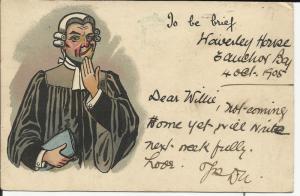 To be brief
Waverley House
4 Oct. 1905
Dear Willie, not coming
Home yet will write
next week fully.
Love.